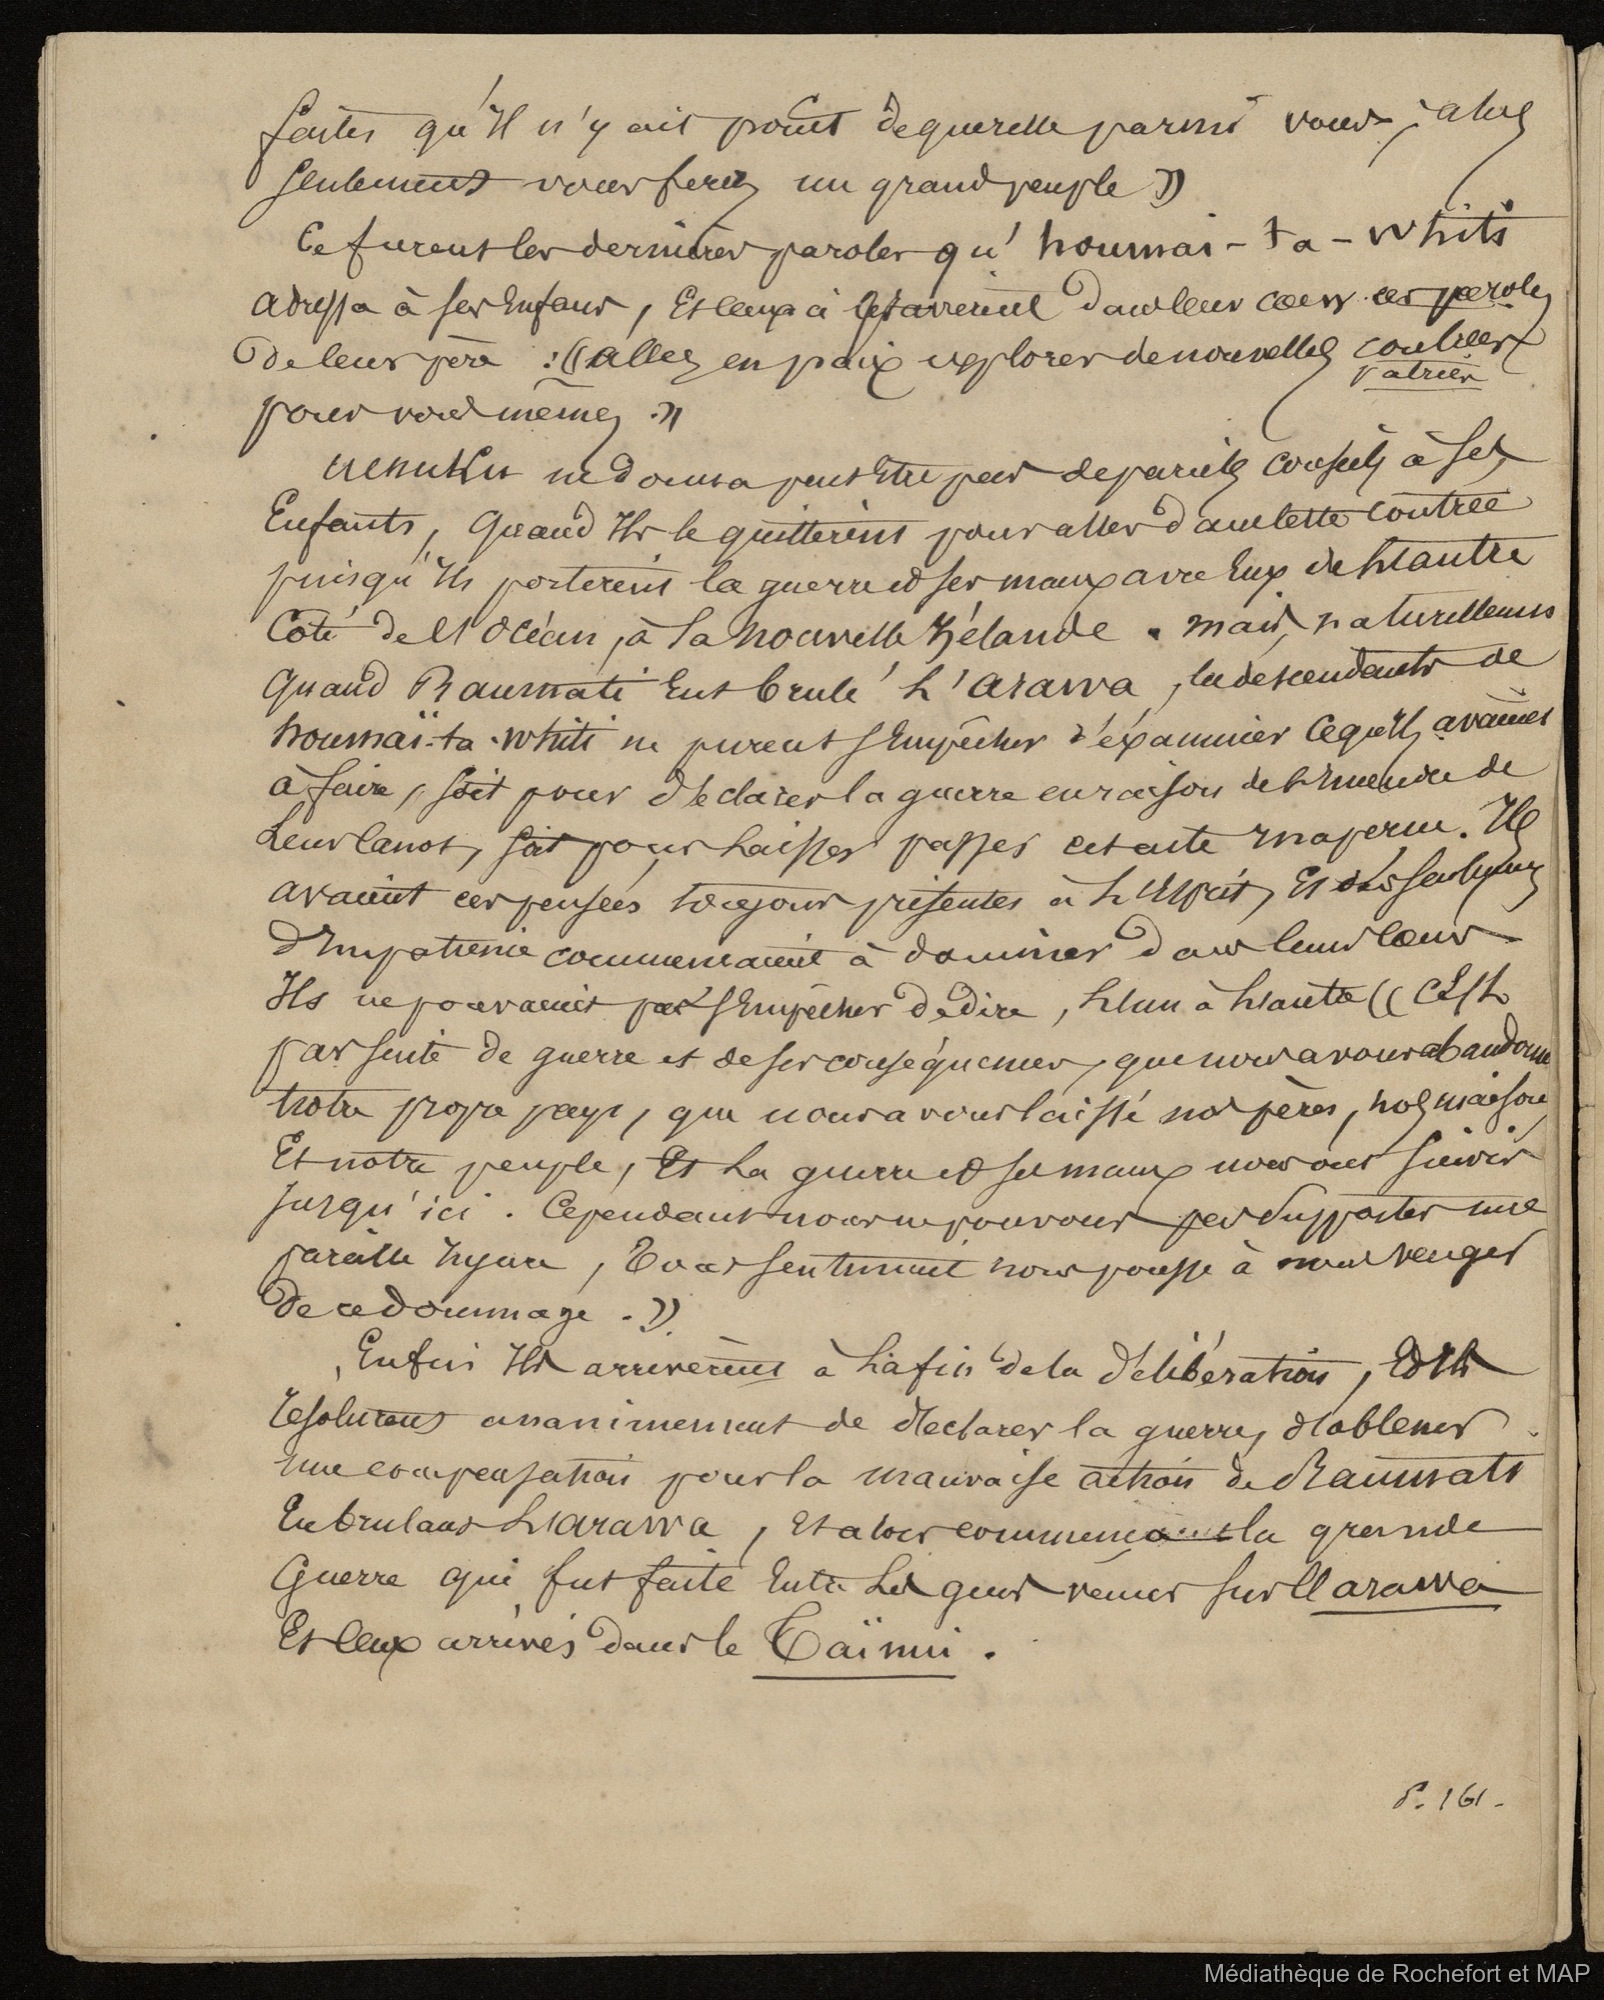 faites qu'Il n'y ait point de querelle parmi vous, alors
seulement vous serez un grand peuple »
Ce furent les dernières paroles qu' houmai - ta - whiti
adressa à ses Enfans, Et ceux ci gravèrent dans leur coeur ces paroles
de leur père : « allez en paix explorer de nouvelles contrées
patries
pour vous mêmes . »
uenuku ne donna peut Etre pas de pareils conseils à Ses
Enfants, Quand Ils le quittèrent pour aller dans cette contrée
puisqu'Ils portèrent la guerre et ses maux avec Eux de l'autre
Côté de l'océan, à la nouvelle Zélande . mais, naturellement
Quand Raumati Eut brulé l'arawa, les descendants de
houmaï-ta-whiti ne purent s'Empêcher d'éxaminer ce qu'Ils avaient
à faire, soit pour déclarer la guerre en raison de l'Incendie de
Leur Canot, soit pour Laisser passer cet acte Inaperçu. Ils
avaient ces pensées toujours présentes à l'Esprit, Et des sentimens
d'Impatience commençaient à dominer dans leurs coeurs
Ils ne pouvaient pas s'Empêcher de dire, l'un à l'autre « C'Est
par suite de guerre et de ses conséquences, que nous avons abandonné
notre propre pays, que nous avons laissé nos pères, nos maisons
Et notre peuple, Et La guerre et ses maux nous ont suivis
jusqu'ici . Cependant nous ne pouvons pas Supporter une
pareille Injure, Tout sentiment nous pousse à nous venger
de ce dommage . »
Enfin Ils arrivèrent à la fin de la délibération, Et Ils
résolurent unanimement de déclarer la guerre, d'obtenir
une compensation pour la mauvaise action de Raumati
En brulant l'arawa, Et alors commença la grande
Guerre qui fut faite Entre Les gens venus sur l'arawa
Et Ceux arrivés dans le Taïnui .
P. 161.
Médiathèque de Rochefort et MAP